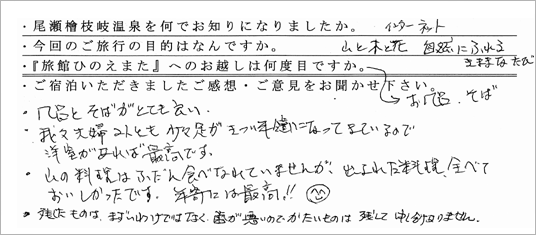 ・尾瀬檜枝岐温泉を何でお知りになりましたか。 インターネット
・今回のご旅行の目的はなんですか。 山と木と花 自然にふれる
・『旅館ひのえまた』へのお越しは何度目ですか。 きままなたび
・ご宿泊いただきましたご感想・ご意見をお聞かせ下さい。 お風呂、そば
・風呂とそばがとても良い。
・我々夫婦2人とも少々足が 年齢になってきているので
洋室があれば最高です。
・山の料理はふだん食べなれていませんが、出された料理、全べて
おいしかったです。年寄には最高!!
・残したものは、まずいわけではなく、歯が悪いのでかたいものは残して申し訳ありません。